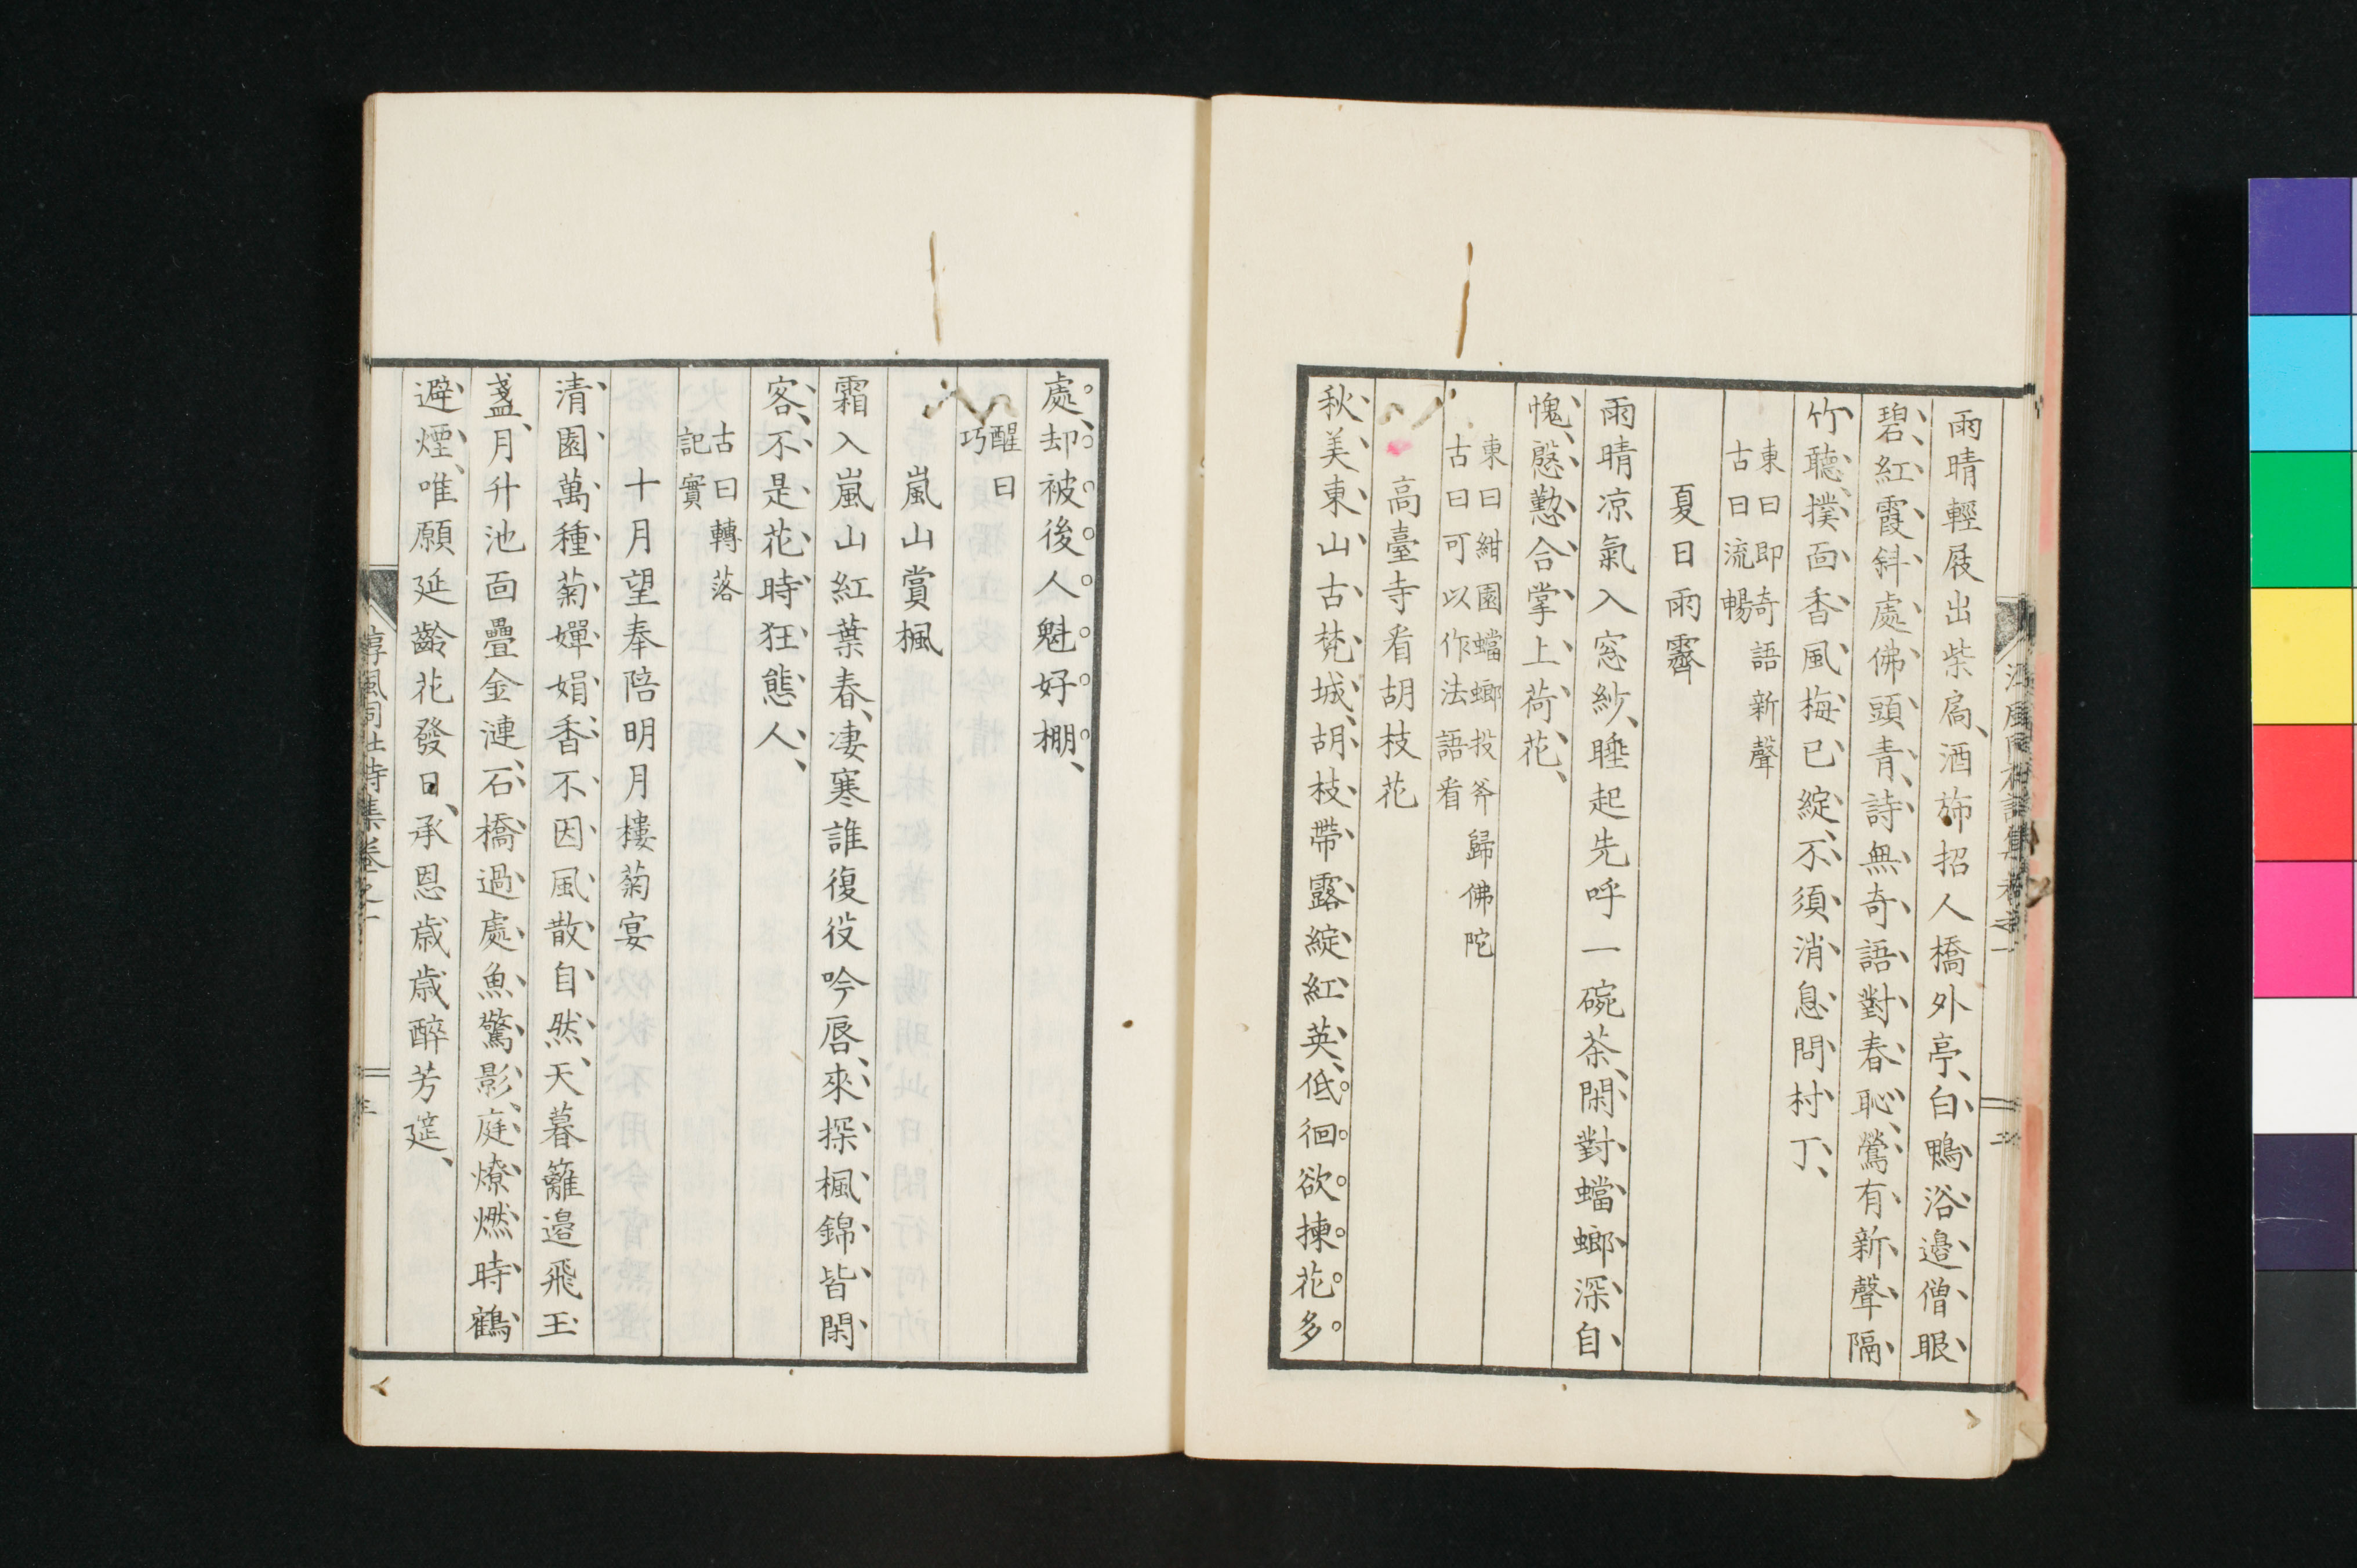 雨晴輕屐出柴扃、酒斾招人橋外亭、白鴨浴邊僧眼
碧、紅霞斜處佛頭青、詩無奇語對春恥、鶯有新聲隔
竹聽、撲面香風梅已綻、不須消息問村丁、
東曰即奇語新聲
古曰流暢
夏日雨霽
雨晴凉氣入窓紗、睡起先呼一碗茶、閑對蟷螂深自
愧、慇懃合掌上荷花、
東曰紺園蟷螂投斧歸佛陀
古曰可以作法語看
高臺寺看胡枝花
秋美東山古梵城、胡枝帶露綻紅英、低徊欲揀花多
處、却被後人魁好棚、
醒曰
巧
嵐山賞楓
霜入嵐山紅葉春、凄寒誰復役吟唇、來探楓錦皆閑
客、不是花時狂態人、
古曰轉落
記實
十月望奉陪明月樓菊宴
清園萬種菊嬋娟、香不因風散自然、天暮籬邉飛玉
盞、月升池面疊金漣、石橋過處魚驚影、庭燎燃時鶴
避煙、唯願延齡花發日、承恩歳歳醉芳筵、
淳風同社詩集卷之一